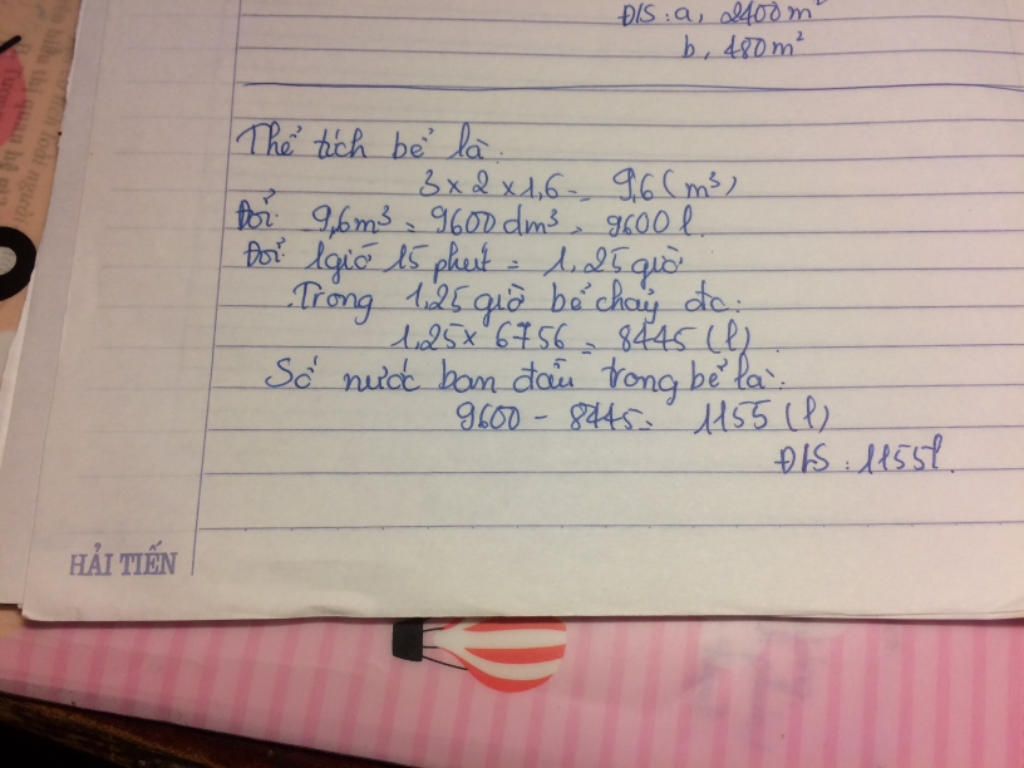 Đ/S : a, 2400 m²
b, 480 m²
Thể tích bể là:
3 x 2 x 1,6 = 9,6 (m³)
Đổi: 9,6m³ = 9600 dm³ = 9600 l.
Đổi: 1 giờ 15 phút = 1,25 giờ
Trong 1,25 giờ bể chảy đc:
1,25 x 6756 = 8445 (l)
Số nước ban đầu trong bể là:
9600 - 8445 = 1155 (l)
Đ/S : 1155l.
HẢI TIẾN